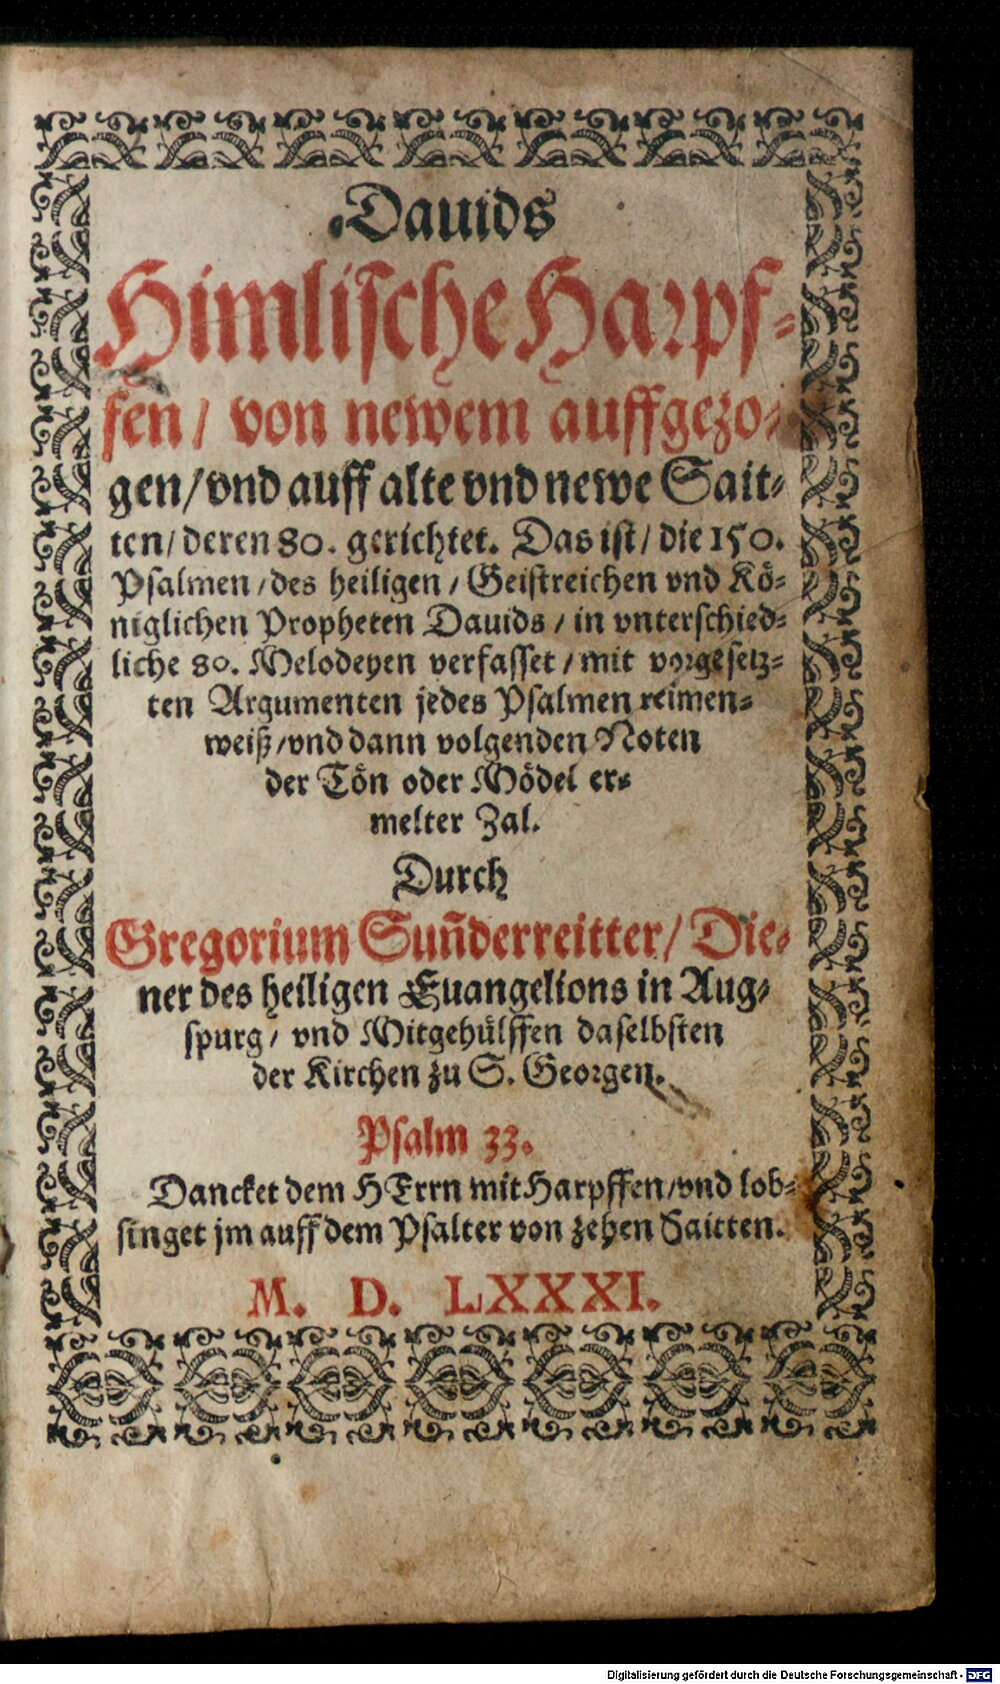 Dauids
Himlische Harpf-
fen/ von newem auffgezo-
gen/vnd auff alte vnd newe Sait-
ten/deren 80. gerichtet. Das ist/die 150.
Psalmen/des heiligen/Geistreichen vnd Kö-
niglichen Propheten Dauids/in vnterschied-
liche 80. Melodeyen verfasset/mit vorgesetz-
ten Argumenten jedes Psalmen reimen-
weiß/vnd dann volgenden Noten
der Tön oder Mödel er-
melter Zal.
Durch
Gregorium Sun̄derreitter/ Die-
ner des heiligen Euangelions in Aug-
spurg/ vnd Mitgehülffen daselbsten
der Kirchen zu S. Georgen.
Psalm 33.
Dancket dem HErrn mit Harpffen/vnd lob-
singet jm auff dem Psalter von zehen Saitten.
M. D. LXXXI.
Digitalisierung gefördert durch die Deutsche Forschungsgemeinschaft - DFG